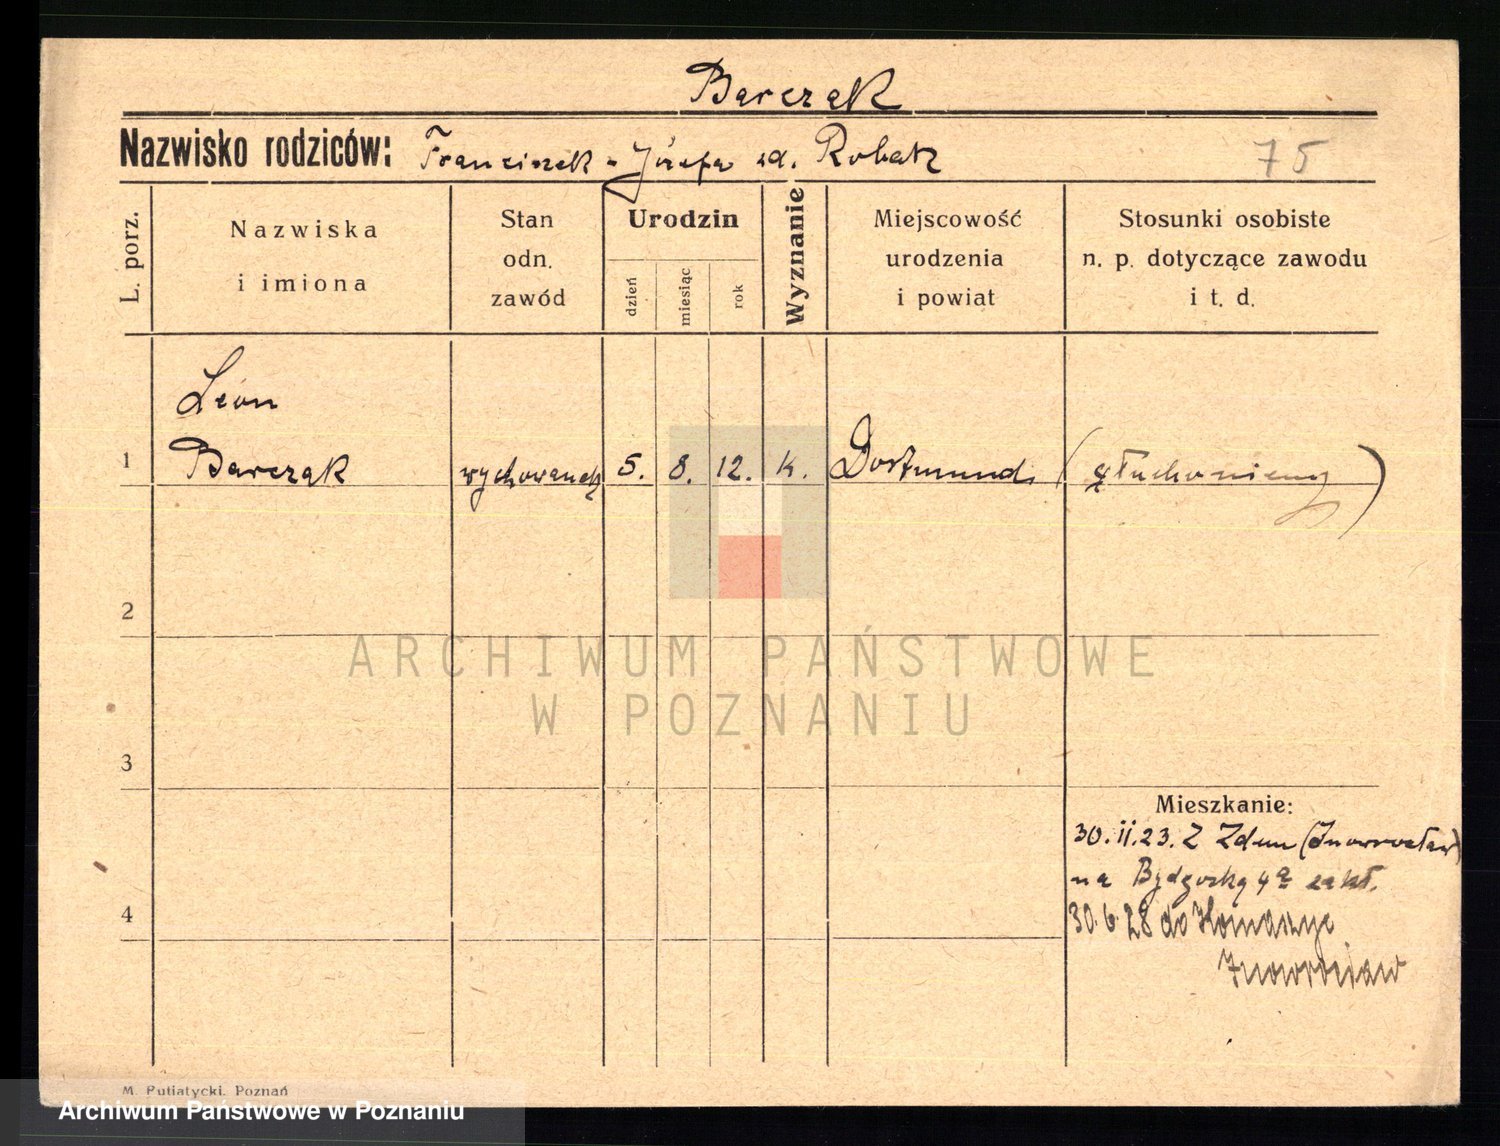 Barczak
Nazwisko rodziców: Franciszek - Józefa zd. Robak
75
L. porz.
Nazwiska
i imiona
Stan
odn.
zawód
Urodzin
dzień
miesiąc
rok
Wyznanie
Miejscowość
urodzenia
i powiat
Stosunki osobiste
n. p. dotyczące zawodu
i t. d.
Leon
1 Barczak wychowanek 5. 8. 12. k. Dortmund (głuchoniemy)
2
ARCHIWUM PAŃSTWOWE
W POZNANIU
3
Mieszkanie:
30.II.23. Z (Inowrocław)
na Bydgoską 4a zakł.
4
30.6.28 do
Inowrocław
M. Putiatycki, Poznań
Archiwum Państwowe w Poznaniu